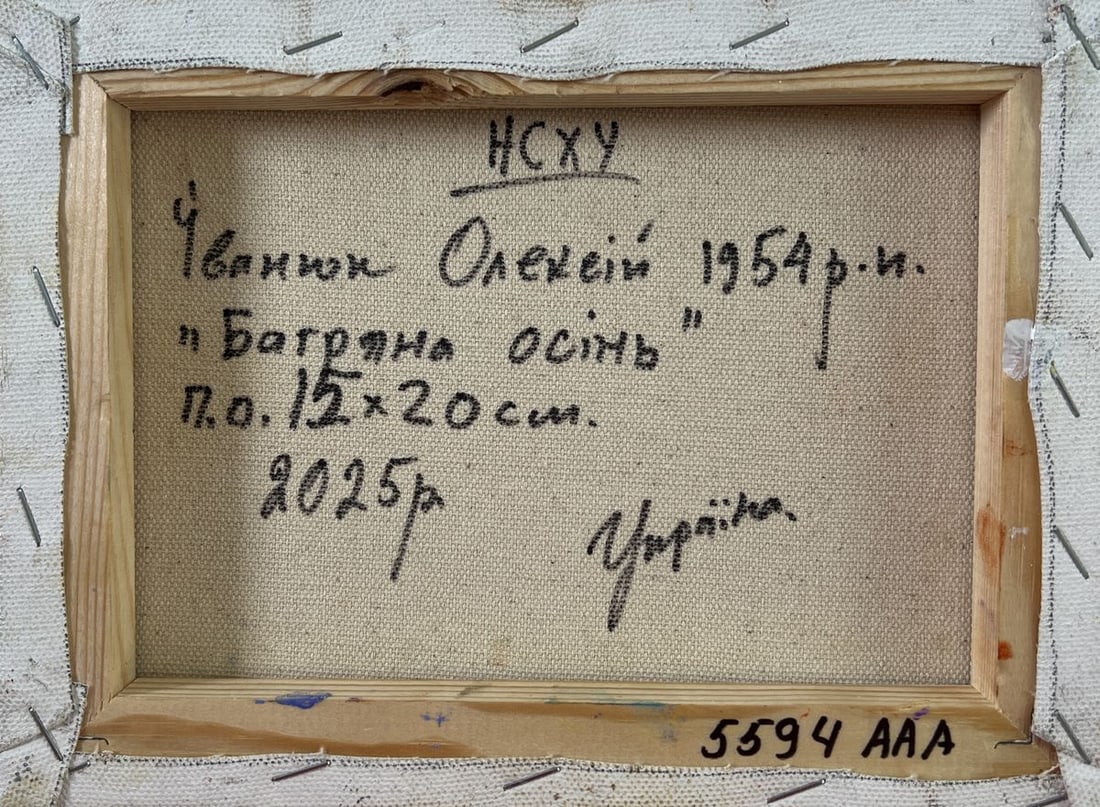 НСХУ
Іванюк Олексій 1954 р.н.
"Багряна осінь"
П.о. 15x20 см.
2025р
Україна.
5594 AAA